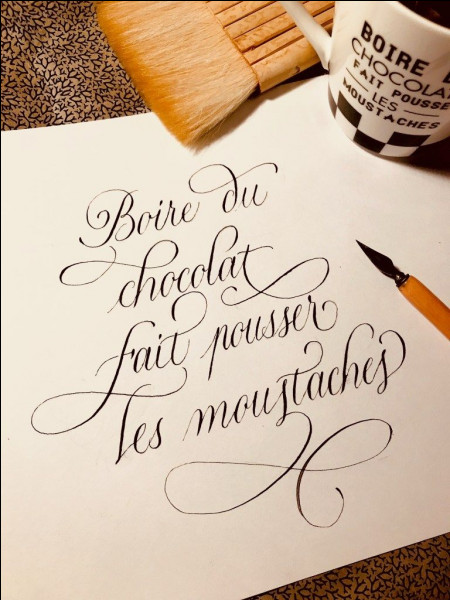 BOIRE D
CHOCOLAT
FAIT POUSSE
LES
MOUSTACHES
Boire du
chocolat
fait pousser
les moustaches